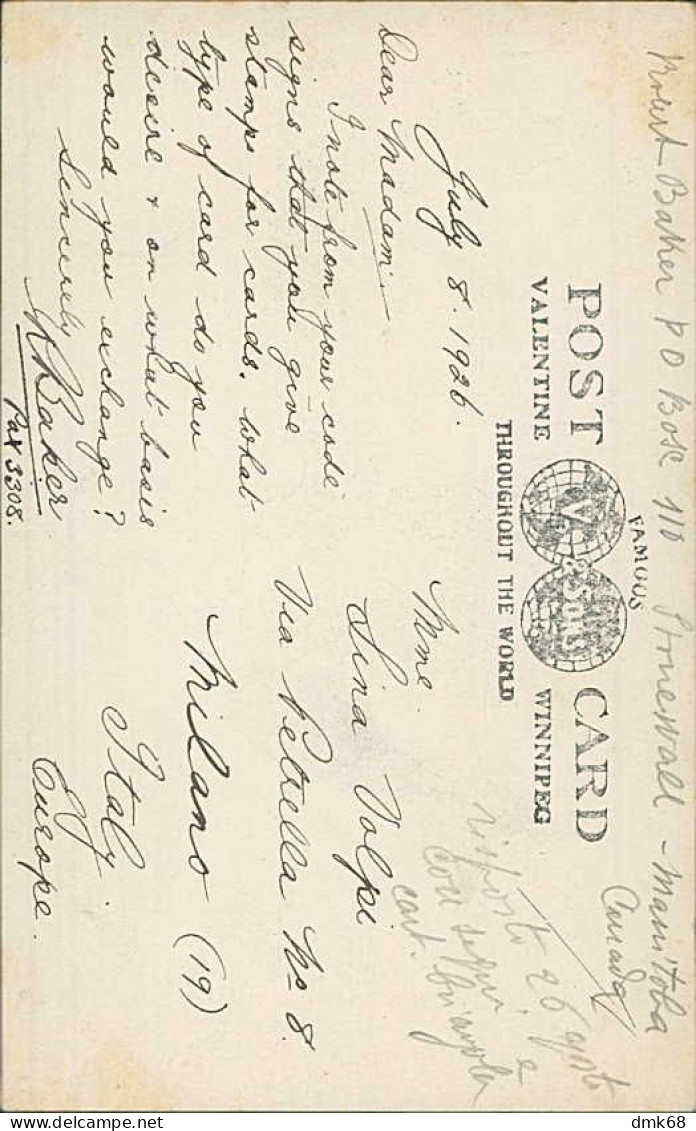 Robert Baker P O Box 110 Stonewall - Manitoba
Canada
POST CARD
FAMOUS
V & Sons
VALENTINE WINNIPEG
THROUGHOUT THE WORLD
July 8. 1926.
Dear Madam:-
I note from your code
signs that you give
stamps for cards. What
type of card do you
desire & on what basis
would you exchange?
Sincerely
R Baker
Pax 3308.
Mme.
Lina Volpi
Via Petrella No 8.
Milano (19)
Italy.
Europe.
risposto 26 agosto
con segni e
cart.
dmk68